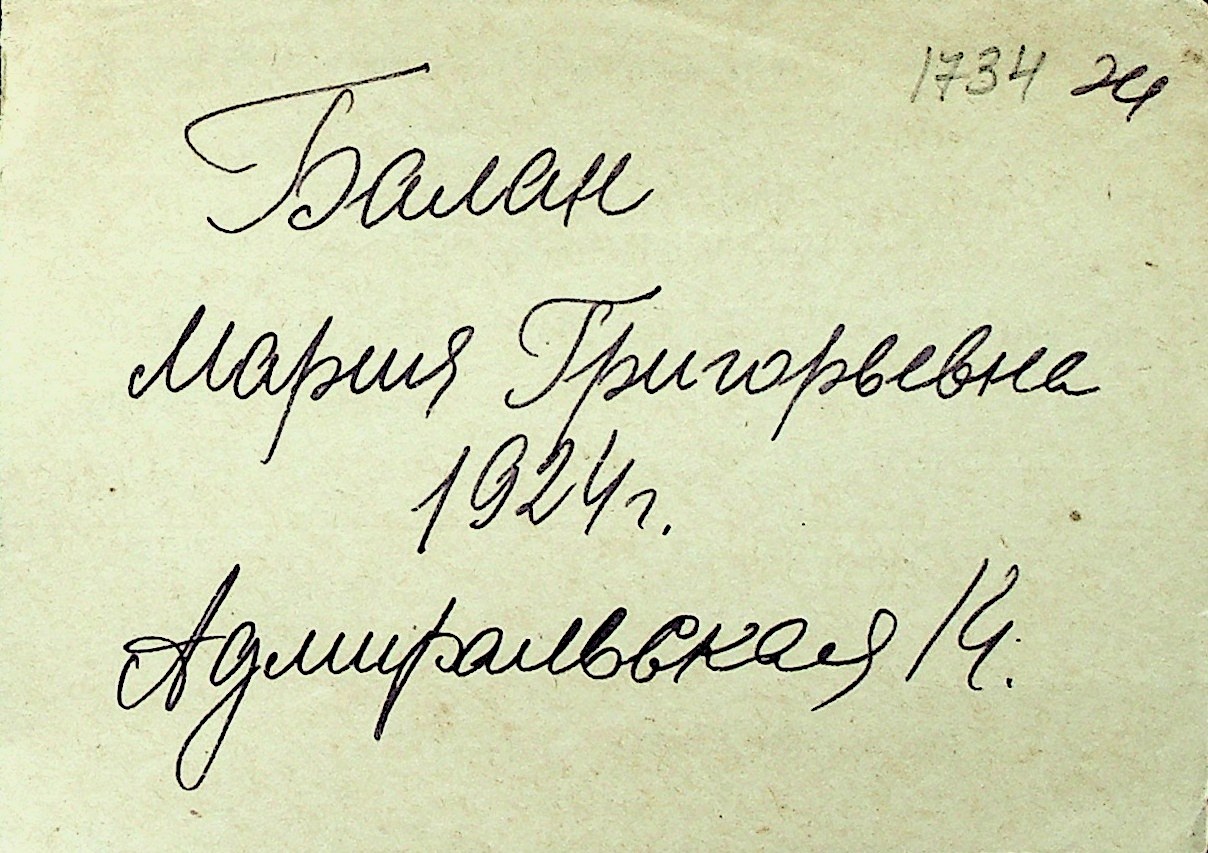 1734
Балан
Мария Григорьевна
1924г.
Адмиральская